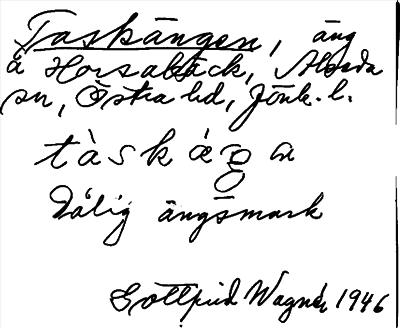 Taskängen, äng
å Horsabäck, Alseda
sn, Östra hd, Jönk. l.
tàskáŋa
Dålig ängsmark
Gottfrid Wagnér 1946